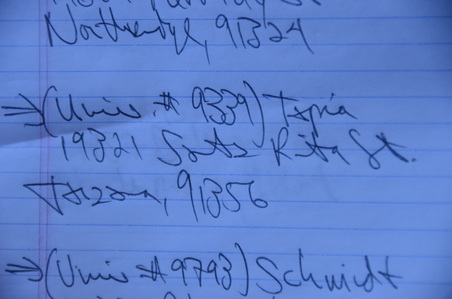 Northridge, 91324
⇒(Univ. # 9339) Tapia
19321 Santa Rita St.
Tarzana, 91356
⇒(Univ #9793) Schmidt